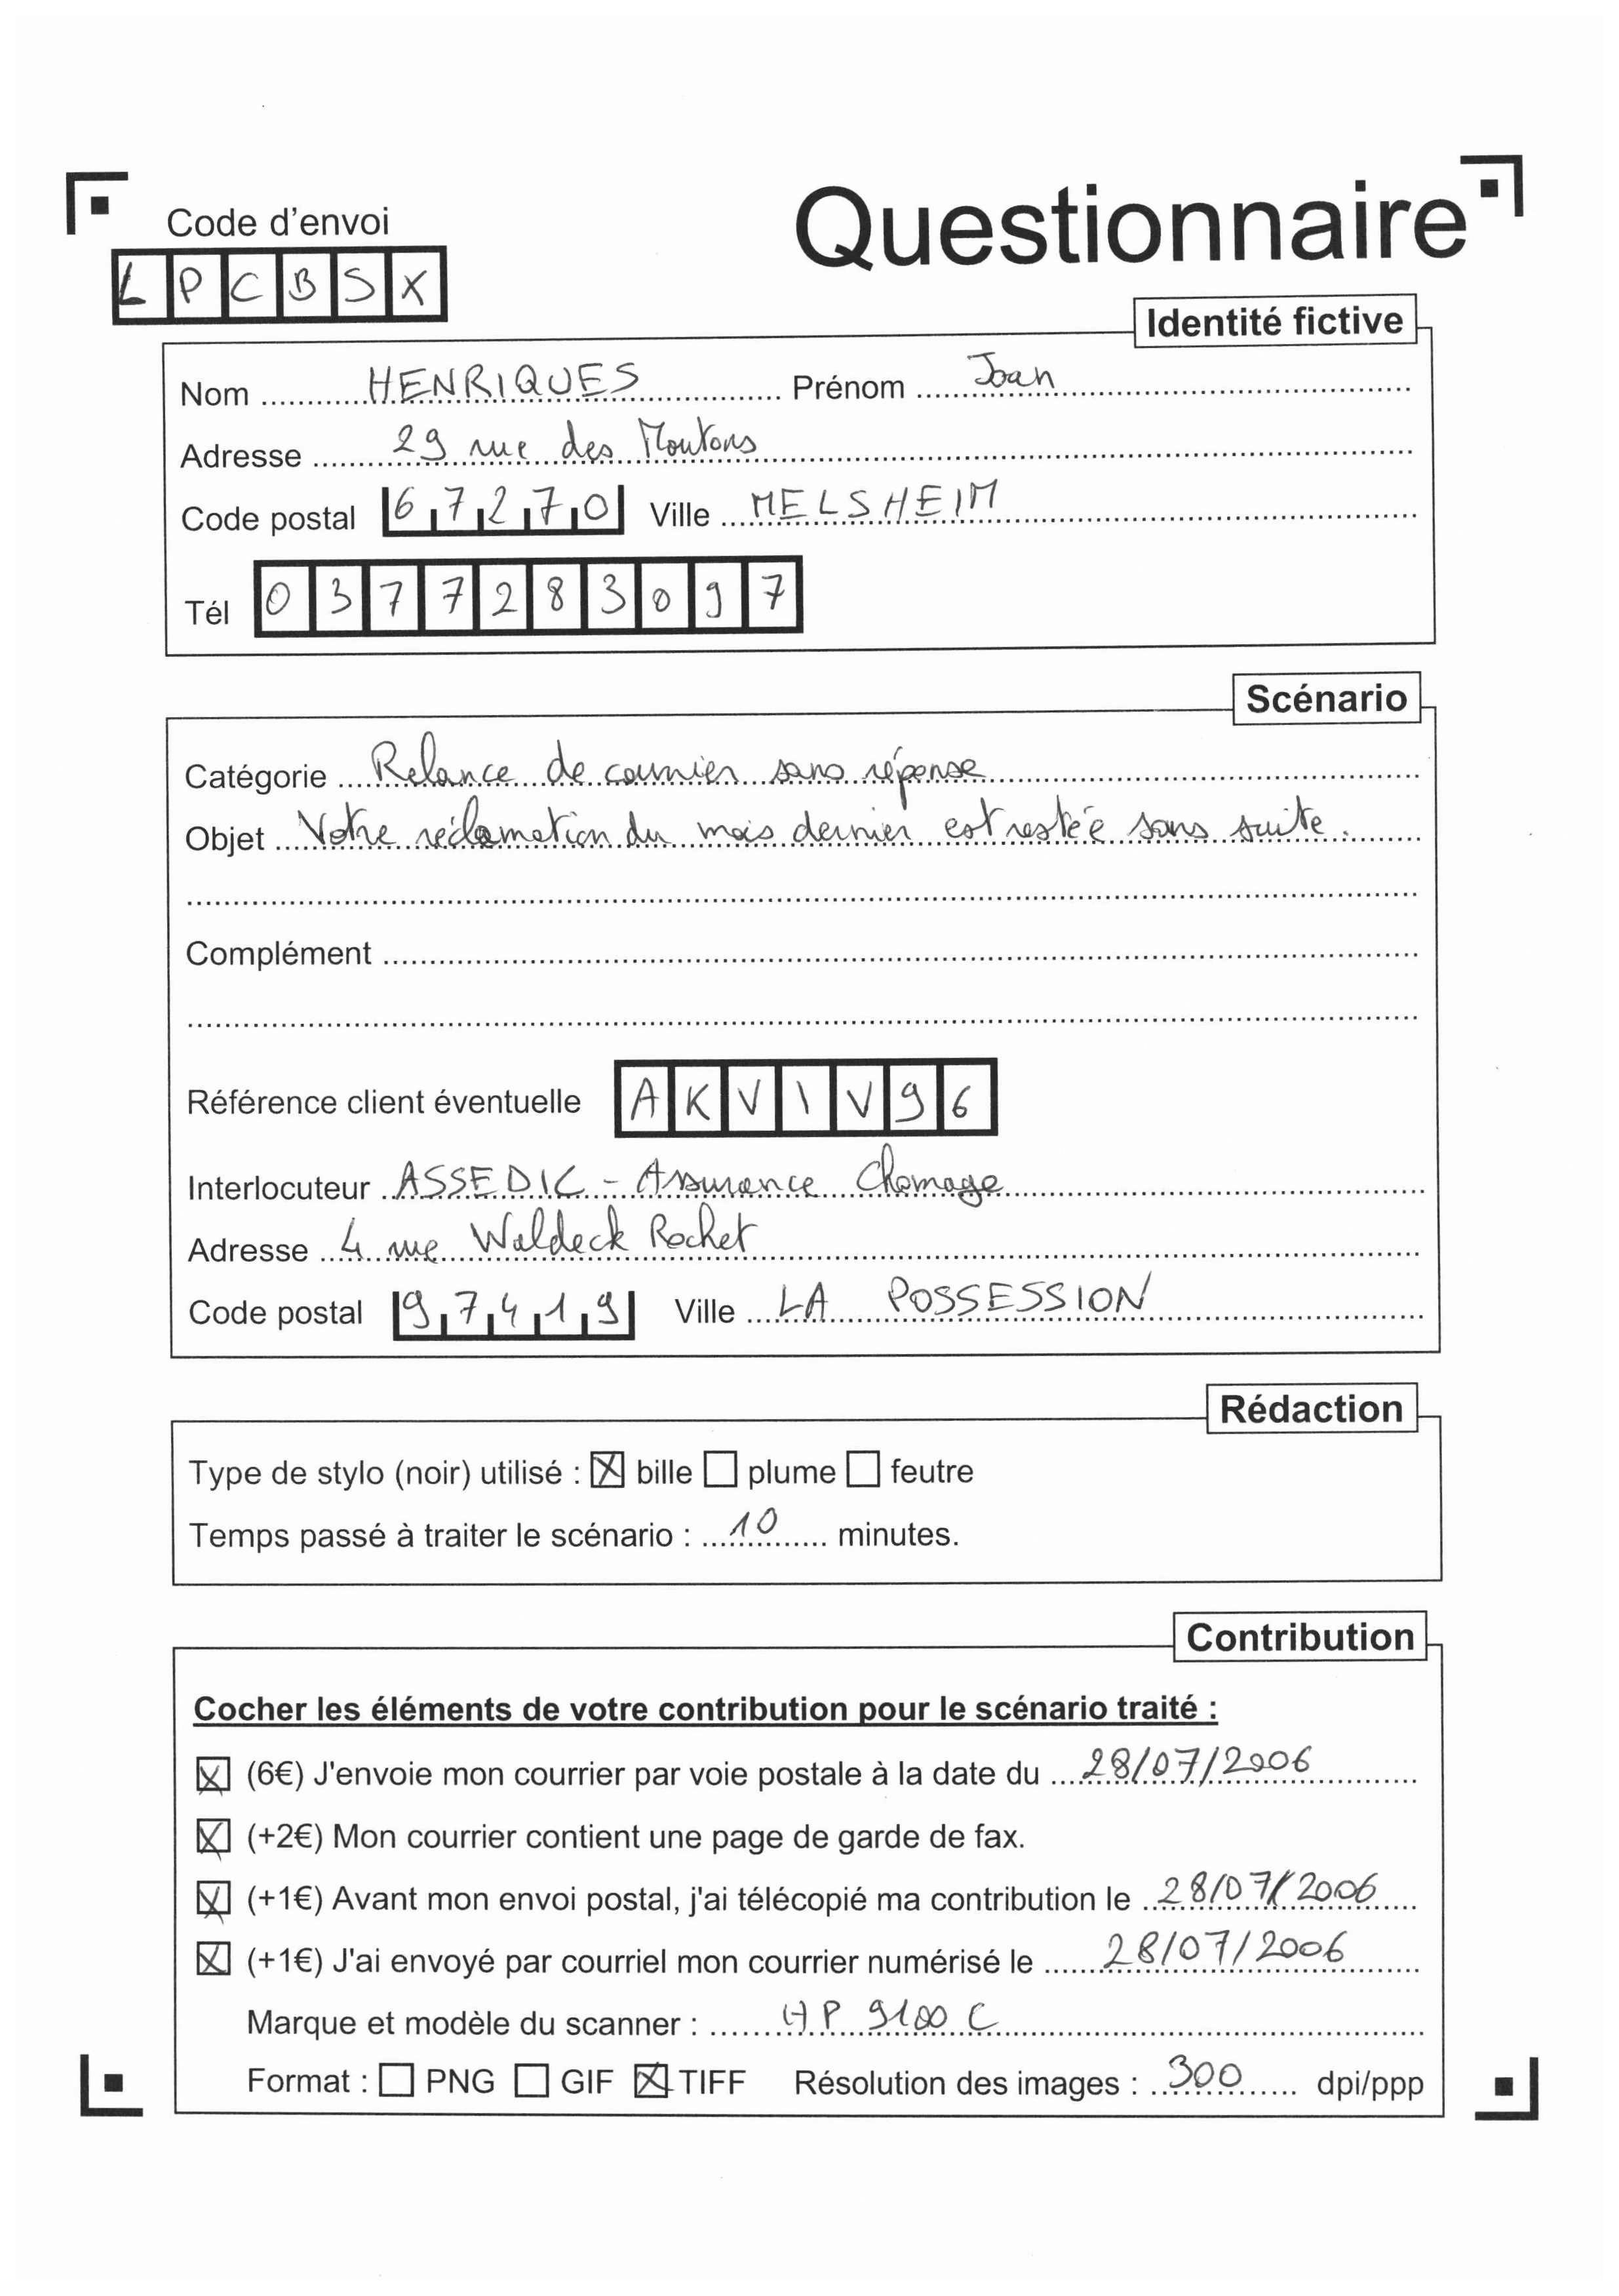 Questionnaire
Code d'envoi
LPCBSX
Identité fictive
Nom HENRIQUES Prénom Joan
Adresse 29 rue des Moutons
Code postal 67270 Ville MELSHEIM
Tél 0377283097
Scénario
Catégorie Relance de courrier sans réponse
Objet Votre réclamation du mois dernier est restée sans suite.
Complément
Référence client éventuelle AKVIV96
Interlocuteur ASSEDIC - Assurance Chomage
Adresse 4 rue Waldeck Rochet
Code postal 97419 Ville LA POSSESSION
Rédaction
Type de stylo (noir) utilisé : ☒ bille ☐ plume ☐ feutre
Temps passé à traiter le scénario : 10 minutes.
Contribution
Cocher les éléments de votre contribution pour le scénario traité :
☒ (6€) J'envoie mon courrier par voie postale à la date du 28/07/2006
☒ (+2€) Mon courrier contient une page de garde de fax.
☒ (+1€) Avant mon envoi postal, j'ai télécopié ma contribution le 28/07/2006
☒ (+1€) J'ai envoyé par courriel mon courrier numérisé le 28/07/2006
Marque et modèle du scanner : HP 9100 C
Format : ☐ PNG ☐ GIF ☒ TIFF Résolution des images : 300 dpi/ppp